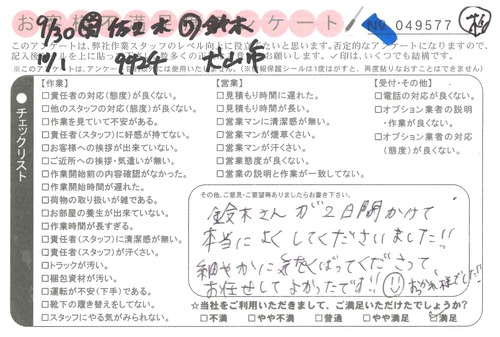 お客様不満足度アンケート No 049577
9/30 佐々木 鈴木
10/1 犬山市
このアンケートは、弊社作業スタッフのレベル向上に役立てたいと思います。否定的なアンケートになりますので、
チェックリスト
【作業】
□責任者の対応(態度)が良くない。
□他のスタッフの対応(態度)が良くない。
□作業を見ていて不安がある。
□責任者(スタッフ)に好感が持てない。
□お客様への挨拶が出来ていない。
□ご近所への挨拶・気遣いが無い。
□作業開始前の内容確認がなかった。
□作業開始時間が遅れた。
□荷物の取り扱いが雑である。
□お部屋の養生が出来ていない。
□作業時間が長すぎる。
□責任者(スタッフ)に清潔感が無い。
□責任者(スタッフ)が汗くさい。
□トラックが汚い。
□梱包資材が汚い。
□運転が不安(下手)である。
□靴下の履き替えをしてない。
□スタッフにやる気がみられない。
【営業】
□見積もり時間に遅れた。
□見積もり時間が長い。
□営業マンに清潔感が無い。
□営業マンが煙草くさい。
□営業マンが汗くさい。
□営業態度が良くない。
□営業の説明と作業が一致してない。
【受付・その他】
□電話の対応が良くない。
□オプション業者の説明
・作業が良くない。
□オプション業者の対応
(態度)が良くない。
その他、ご意見・ご要望等ありましたらお書き下さい。
鈴木さんが2日間かけて
本当によくしてくださいました!!
細やかに気をくばってくださって
お任せしてよかったです!!
おつかれ様でした!!
☆当社をご利用いただきまして、ご満足いただけたでしょうか?
□不満 □やや不満 □普通 □やや満足 □満足